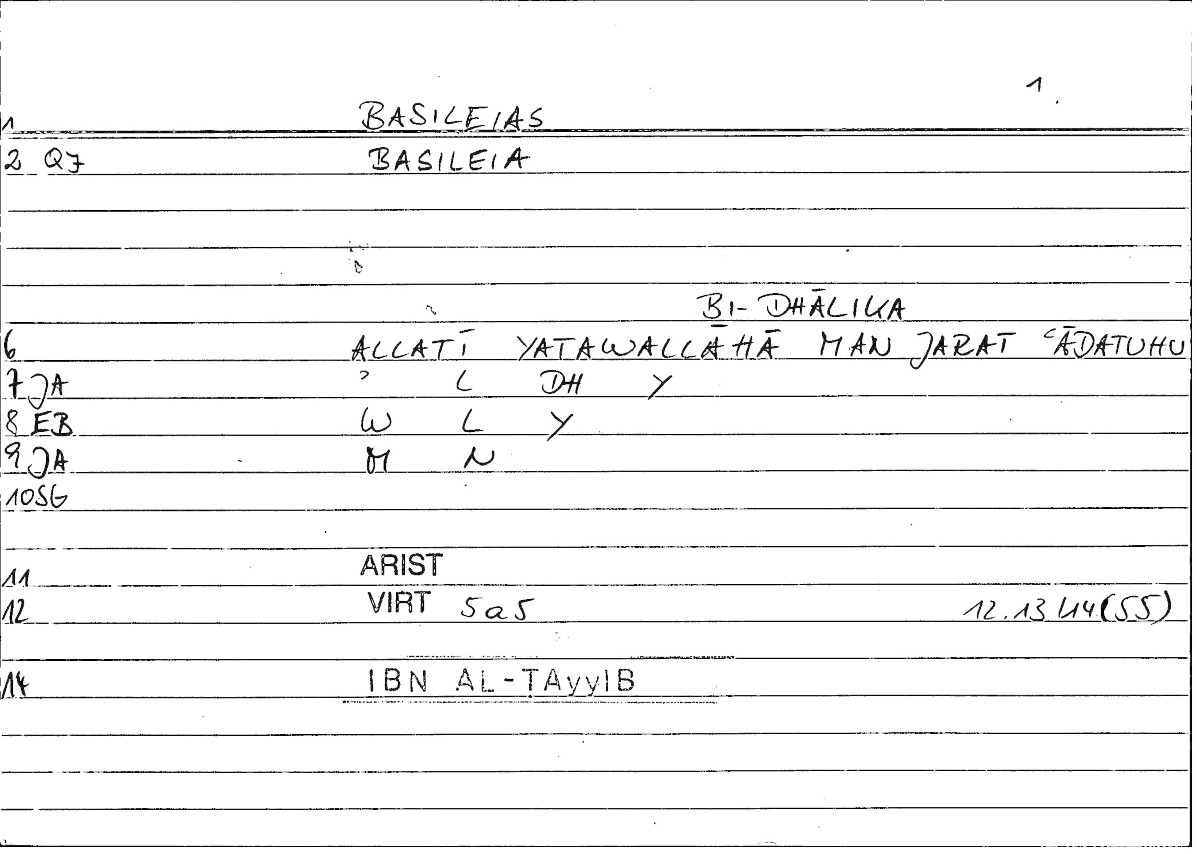 1.
1 BASILEIAS
2 Q7 BASILEIA
BI-DHĀLIKA
6 ALLATĪ YATAWALLĀHĀ MAN JARAT ʿĀDATUHU
7 JA ʾ L DH Y
8 EB W L Y
9 JA M N
10 SG
11 ARIST
12 VIRT 5a5 12.13/14(55)
14 IBN AL-TAyyIB